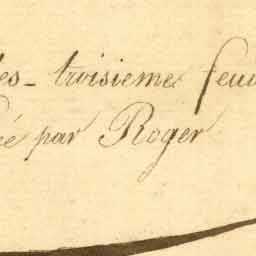 les_ troisieme feui
ée par Roger